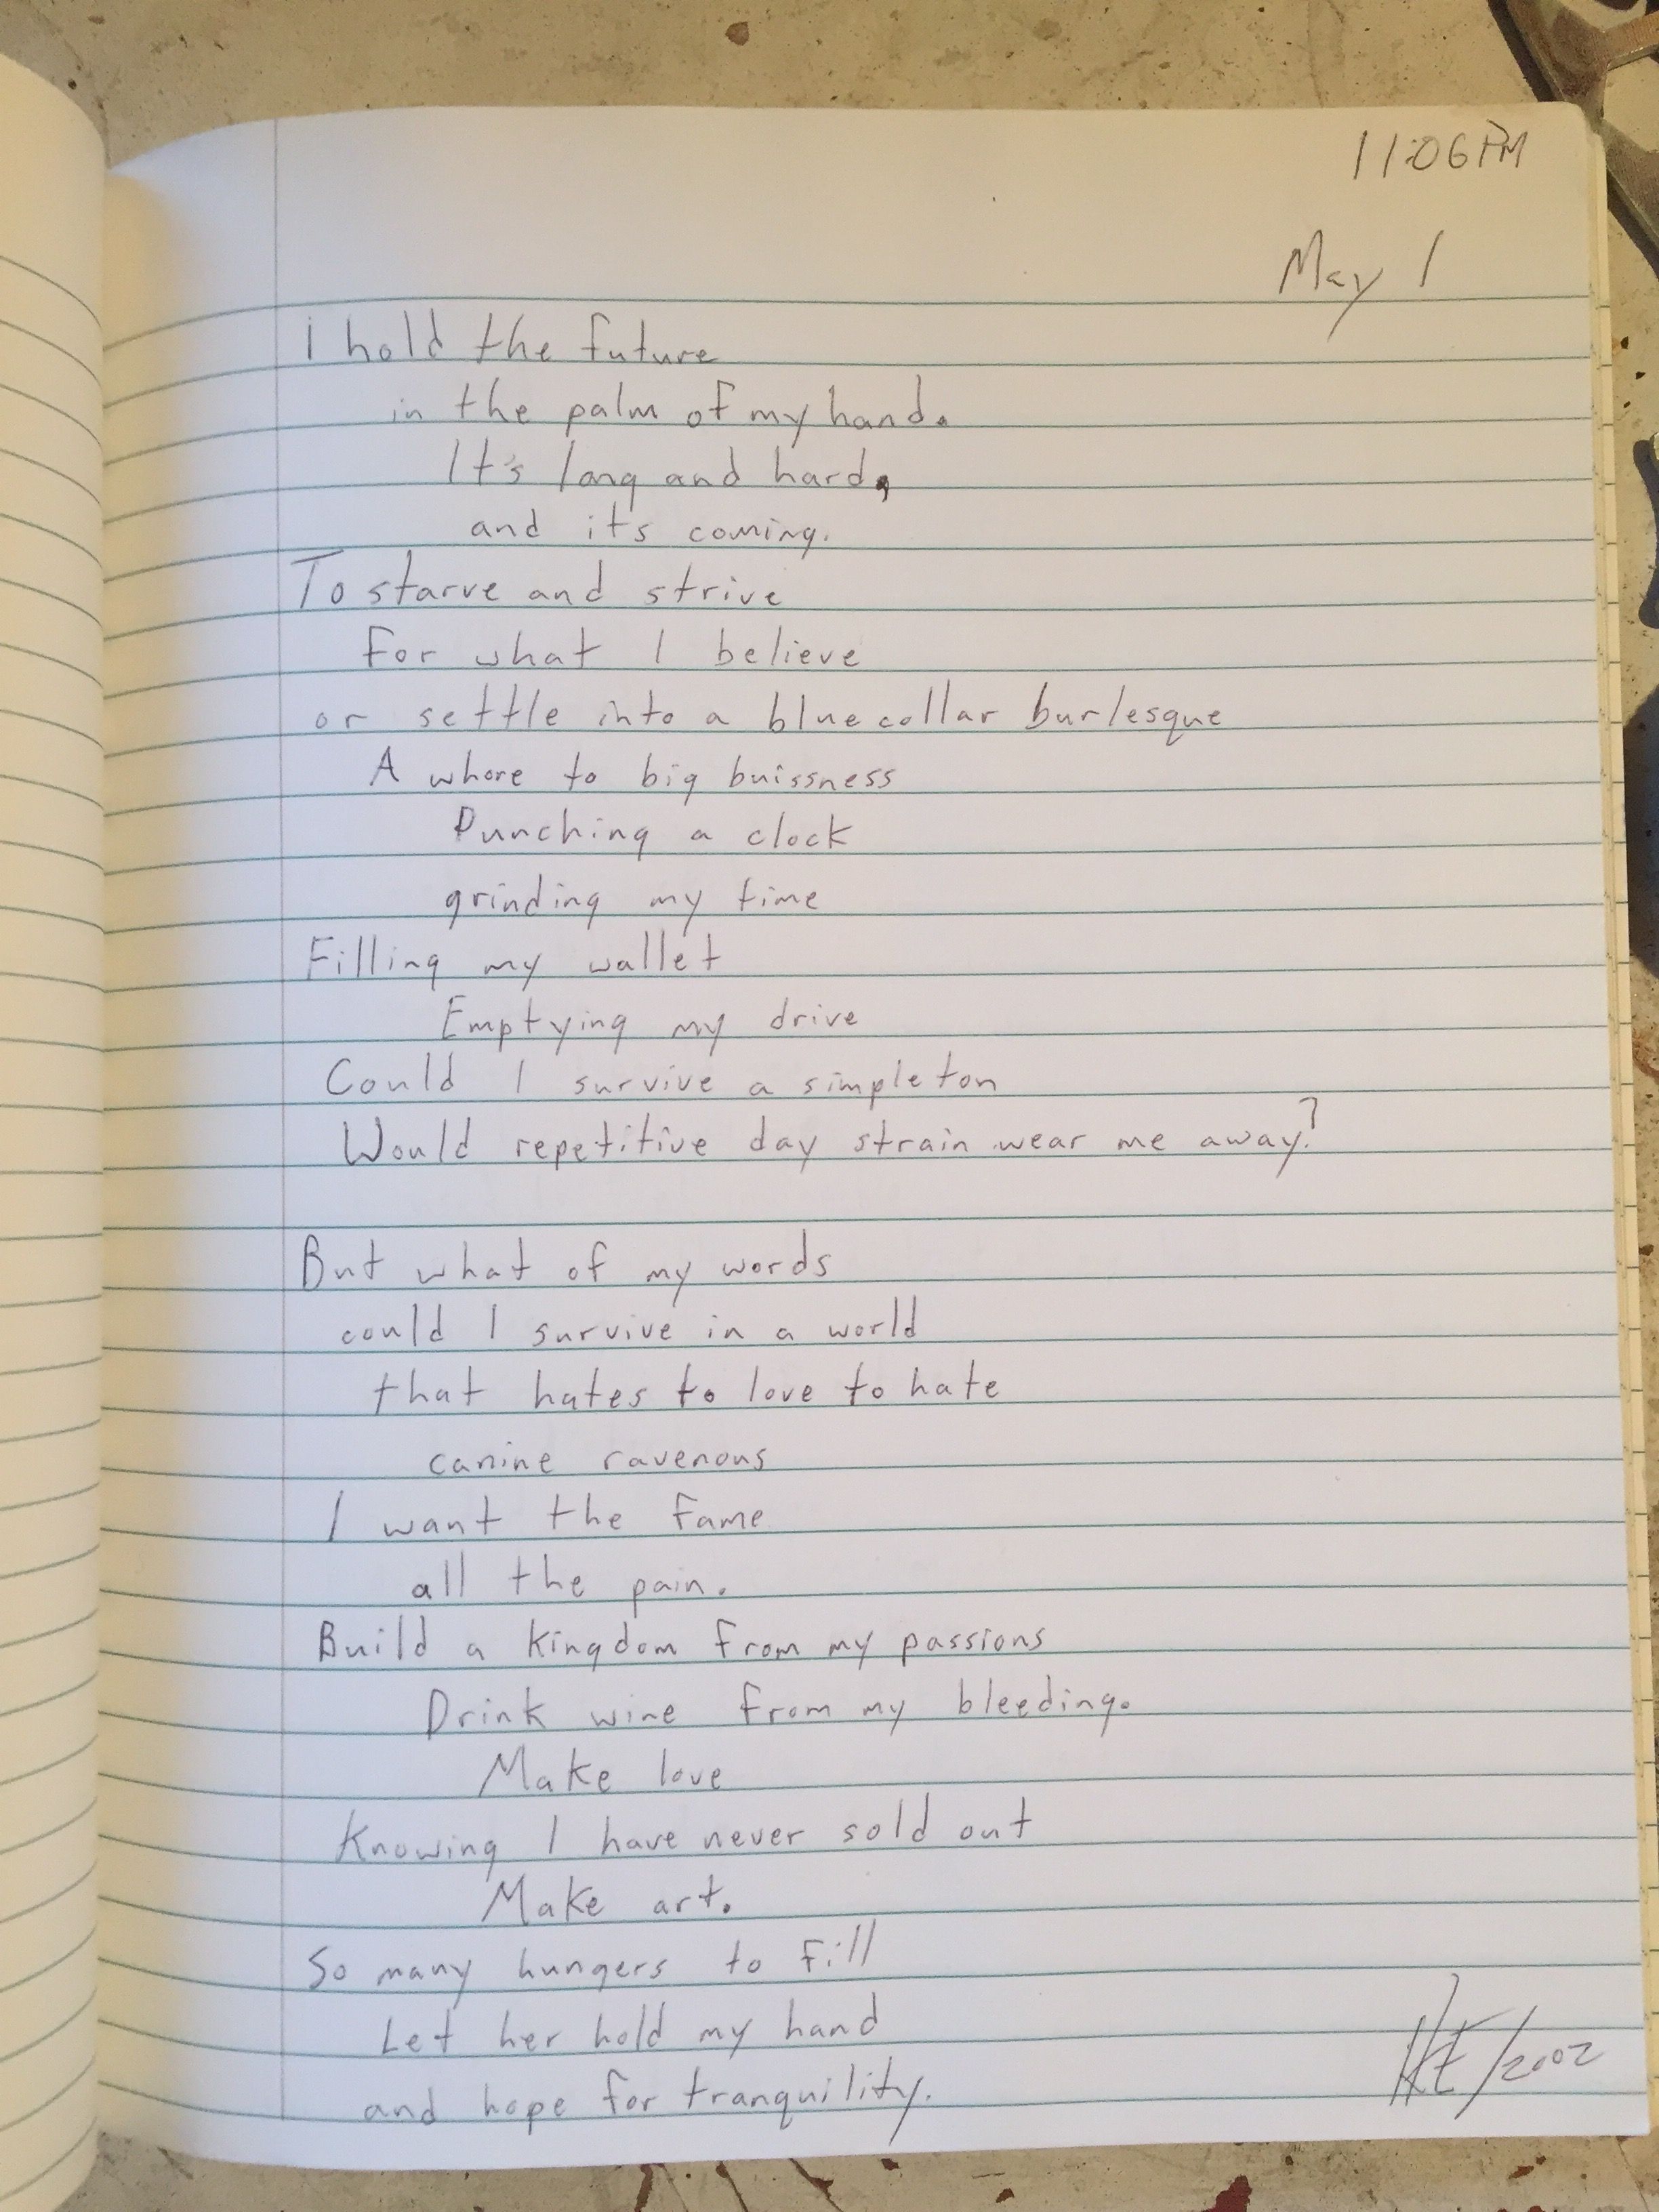 11:06PM
May 1
I hold the future
in the palm of my hand.
It's long and hard,
and it's coming.
To starve and strive
for what I believe
or settle into a blue collar burlesque
A whore to big buissness
Punching a clock
grinding my time
Filling my wallet
Emptying my drive
Could I survive a simpleton
Would repetitive day strain wear me away?
But what of my words
could I survive in a world
that hates to love to hate
canine ravenous
I want the fame
all the pain.
Build a kingdom from my passions
Drink wine from my bleeding.
Make love
Knowing I have never sold out
Make art.
So many hungers to fill
Let her hold my hand
and hope for tranquility.
/2002